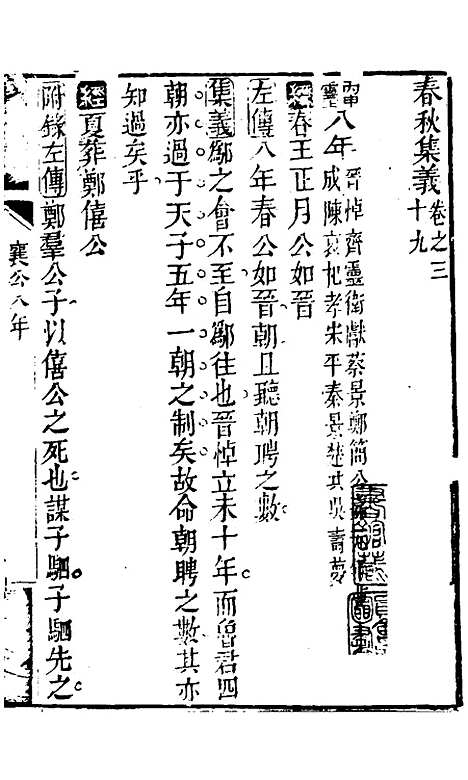 春秋集義卷之三十九
八年
晉悼齊靈衛獻蔡景鄭簡公
成陳哀杞孝宋平秦景楚共吳壽夢
經春王正月公如晉
左傳八年春公如晉朝且聽朝聘之數
集義鄬之會不至自鄬往也晉悼立未十年而魯君四
朝亦過于天子五年一朝之制矣故命朝聘之數其亦
知過矣乎
經夏葬鄭僖公
附錄左傳鄭羣公子以僖公之死也謀子駟子駟先之
襄公八年